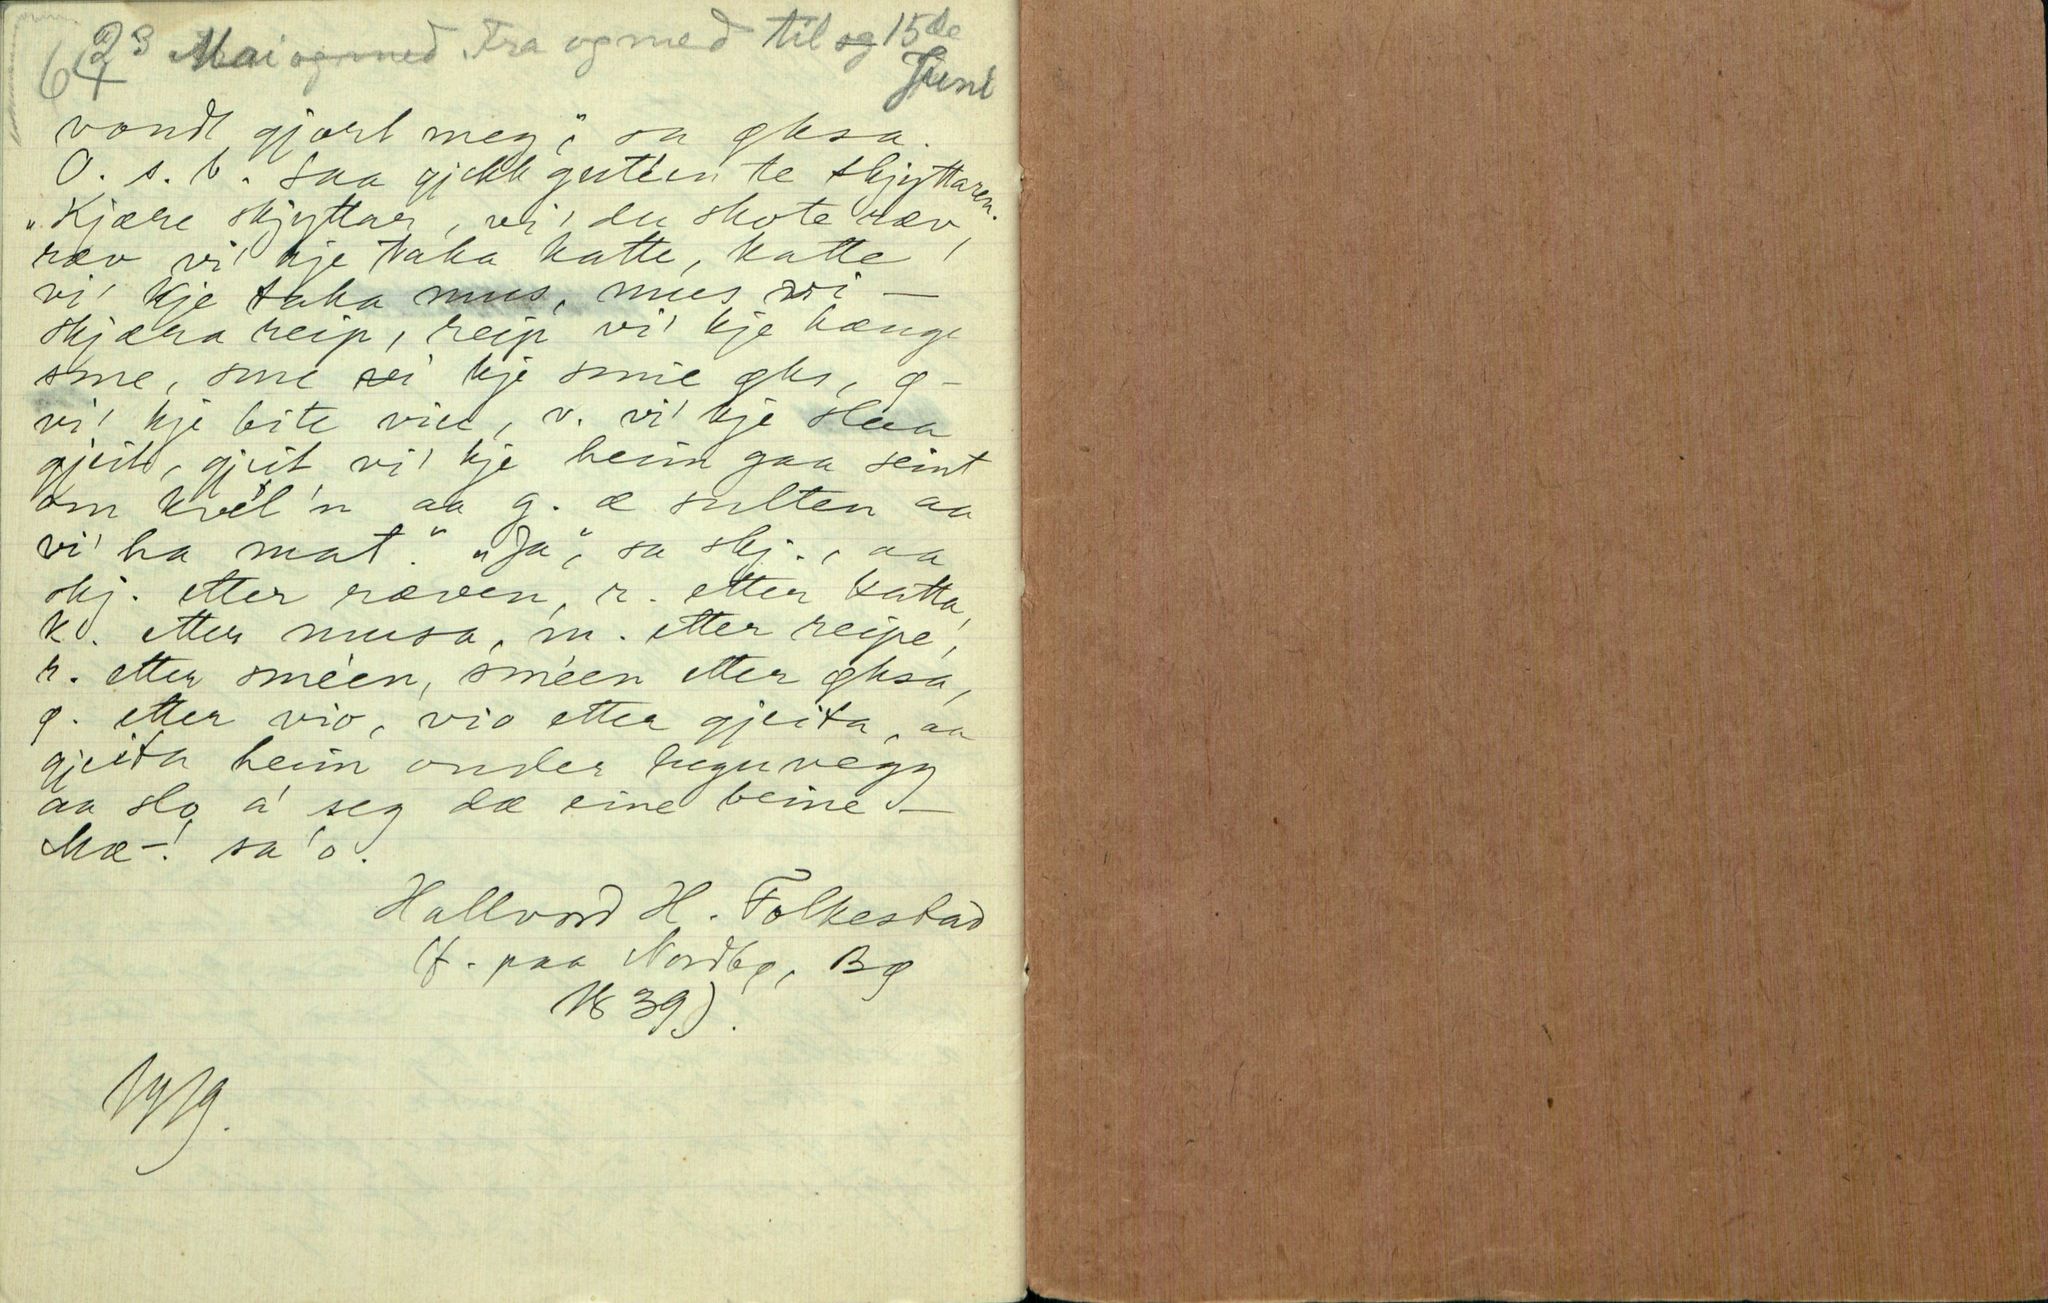 64
23 Mai og med Fra og med til og 15de
Juni
vondt gjort meg," sa øksa.
O. s. b. Saa gjekk guté'en te skjyttaren.
"Kjære skjyttar, vi' du skote ræv,
ræv vi' kje taka katte, katte
vi' kje taka mus, mus vi' –
skjæra reip, reip vi' kje hænge
sme, sme vi' kje smie øks, ø –
vi' kje bite vie, v. vi' kje slaa
gjeit, gjeit vi' kje heim gaa seint
om kvél'n aa g. æ sulten aa
vi' ha mat." "Ja", sa skj., aa
skj. etter ræven, r. etter katta,
k. etter musa, m. etter reipe,
r. etter sméen, sméen etter øksa,
ø. etter vio, vio etter gjeita, aa
gjeita heim onder buguvegg
aa slo a' seg dæ eine beine –
Mæ –! sa 'o.
Hallvord H. Folkestad
(f. paa Nordbø, Bø
1839).
1919.